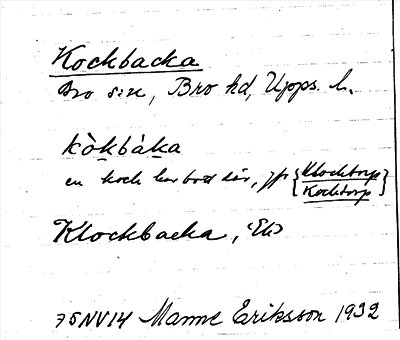 Kockbacka
Bro s:n, Bro hd, Upps. l.
kòkbàka
en kock har bott där, jfr {Klocktorp
Kocktorp}
Klockbacka, Ek
75NV14 Manne Eriksson 1932